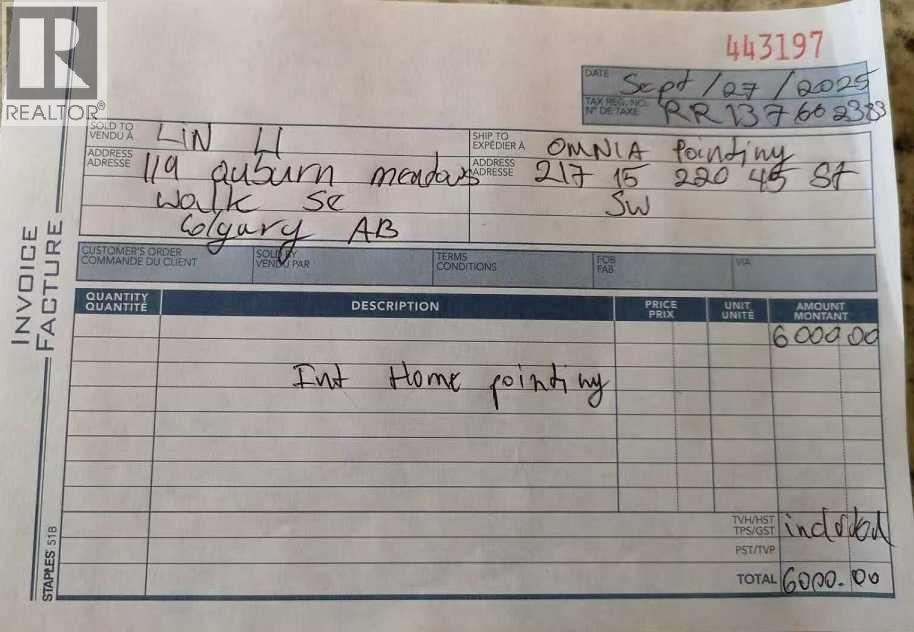 R
REALTOR®
443197
DATE Sept/27/2025
TAX REG. NO.
N° DE TAXE RR 137602383
SOLD TO
VENDU À LIN LI
ADDRESS
ADRESSE 119 auburn meadows
walk SE
Calgary AB
SHIP TO
EXPÉDIER À OMNIA Painting
ADDRESS
ADRESSE 217 15 220 45 St
SW
INVOICE
FACTURE
CUSTOMER'S ORDER
COMMANDE DU CLIENT
SOLD BY
VENDU PAR
TERMS
CONDITIONS
FOB
FAB
VIA
QUANTITY
QUANTITÉ
DESCRIPTION
PRICE
PRIX
UNIT
UNITÉ
AMOUNT
MONTANT
6000.00
Int Home painting
TVH/HST
TPS/GST included
PST/TVP
TOTAL 6000.00
STAPLES 51B